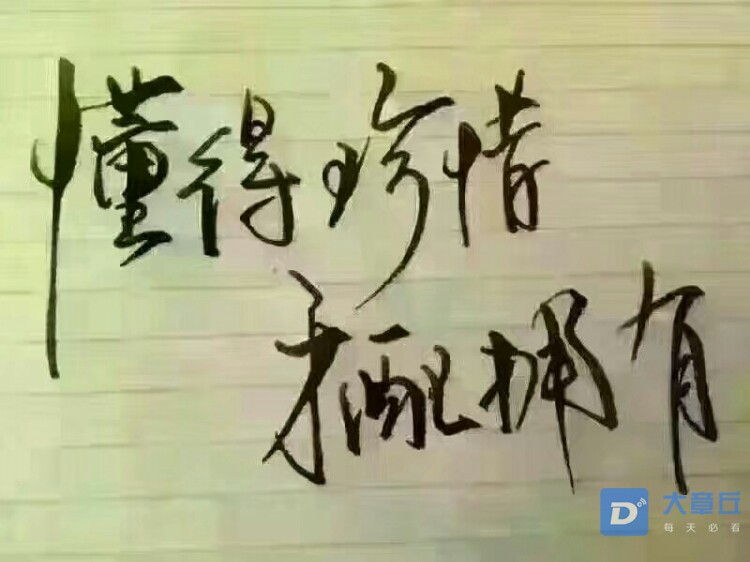 懂得珍惜
才配拥有
D 大章丘
每天必看